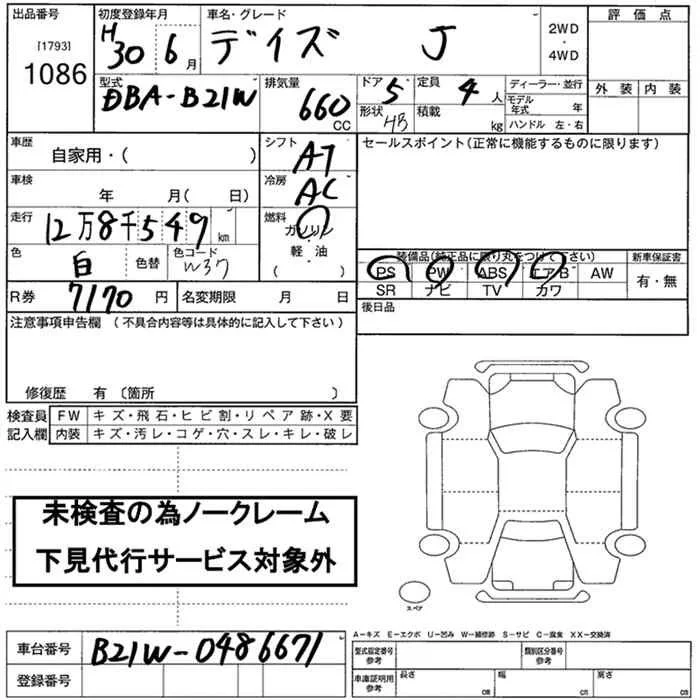 出品番号 初度登録年月 車名・グレード 評価点
[1793] H30 6月 デイズ J 2WD・4WD
1086
外装 内装
型式 排気量 ドア 5 定員 4人 ディーラー・並行
DBA-B21W 660CC 形状 積載 kg モデル年式 年
ハンドル 左・右
車歴 自家用・( ) シフト AT セールスポイント(正常に機能するものに限ります)
車検 年 月( 日) 冷房 AC
走行 12万8千549km 燃料 ガソリン
軽・油
( )
色 白 色替 色コード W37
装備品(純正品に限り丸をつけて下さい) 新車保証書
PS PW ABS エアB AW 有・無
SR ナビ TV カワ
R券 7170円 名変期限 月 日
後日品
注意事項申告欄 (不具合内容等は具体的に記入して下さい)
修復歴 有 (箇所 )
検査員 FW キズ・飛石・ヒビ割・リペア跡・X要
記入欄 内装 キズ・汚レ・コゲ・穴・スレ・キレ・破レ
未検査の為ノークレーム
下見代行サービス対象外
スペア
A-キズ E-エクボ U-凹み W-補修跡 S-サビ C-腐食 XX-交換済
車台番号 B21W-0486671
型式指定番号 参考 類別区分番号 参考
登録番号
車庫証明用 参考 長さ cm 幅 cm 高さ cm